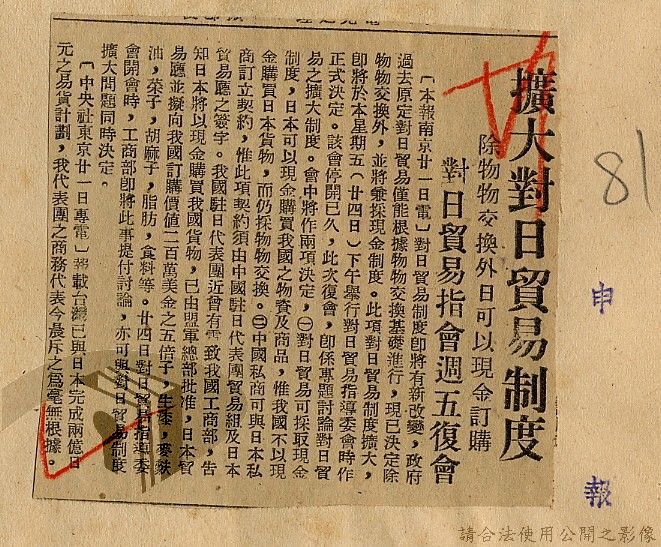 擴大對日貿易制度
除物物交換外日可以現金訂購
對日貿易指會週五復會
〔本報南京廿一日電〕對日貿易制度即將有新改變，政府
過去原定對日貿易僅能根據物物交換基礎進行，現已決定除
物物交換外，並將兼採現金制度。此項對日貿易制度擴大，
即將於本星期五（廿四日）下午舉行對日貿易指導委會時作
正式決定。該會停開已久，此次復會，即係專題討論對日貿
易之擴大制度。會中將作兩項決定，㊀對日貿易可採取現金
制度，日本可以現金購買我國之物資及商品，惟我國不以現
金購買日本貨物，而仍採物物交換。㊁中國私商可與日本私
商訂立契約，惟此項契約須由中國駐日代表團貿易組及日本
貿易廳之簽字。我國駐日代表團近曾有電致我國工商部，告
知日本將以現金購買我國貨物，已由盟軍總部批准，日本貿
易廳並擬向我國訂購價值二百萬美金之五倍子，生漆，麥麩
油，菜子，胡麻子，脂肪，食料等。廿四日對日貿易指導委
會開會時，工商部即將此事提付討論，亦可與對日貿易制度
擴大問題同時決定。
〔中央社東京廿一日專電〕報載台灣已與日本完成兩億日
元之易貨計劃，我代表團之商務代表今晨斥之為毫無根據。
81
申報
請合法使用公開之影像